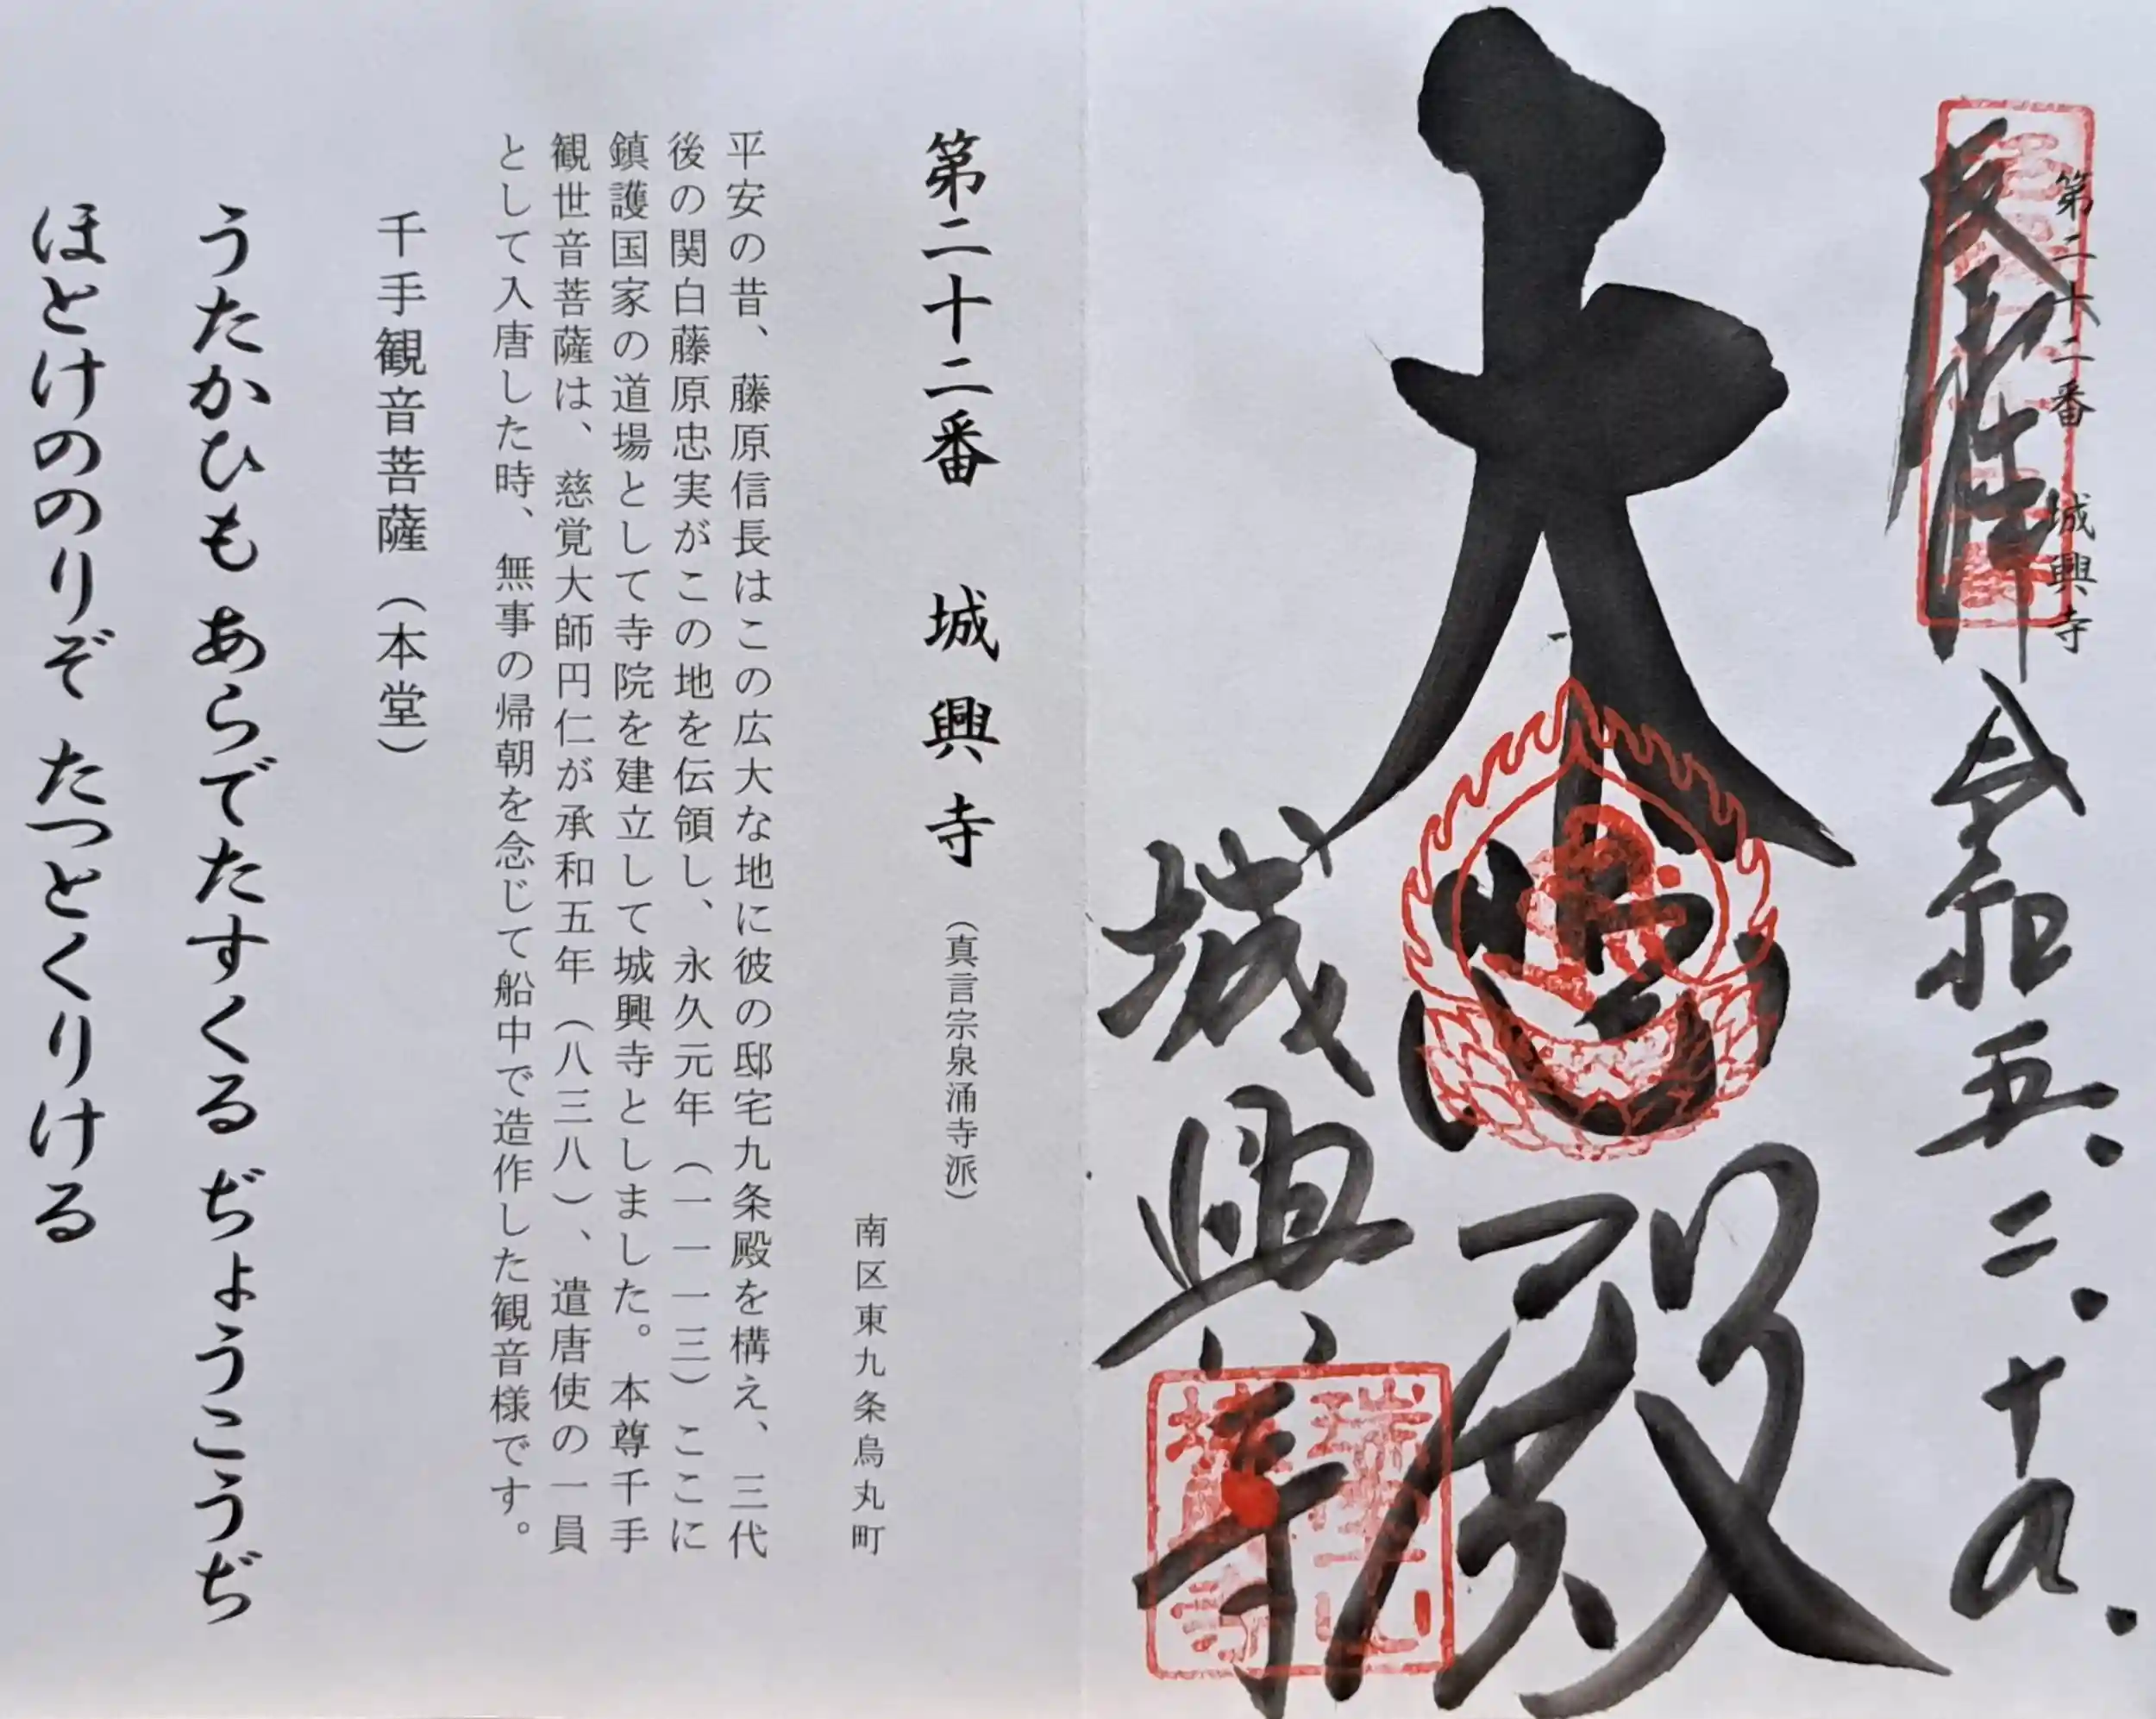 第二十二番 城興寺
奉拝
令和五、二、十九、
大悲殿
城興寺
第二十二番 城興寺 （真言宗泉涌寺派）
南区東九条烏丸町
平安の昔、藤原信長はこの広大な地に彼の邸宅九条殿を構え、三代
後の関白藤原忠実がこの地を伝領し、永久元年（一一一三）ここに
鎮護国家の道場として寺院を建立して城興寺としました。本尊千手
観世音菩薩は、慈覚大師円仁が承和五年（八三八）、遣唐使の一員
として入唐した時、無事の帰朝を念じて船中で造作した観音様です。
千手観音菩薩（本堂）
うたかひも あらでたすくる ぢょうこうぢ
ほとけののりぞ たつとくりける